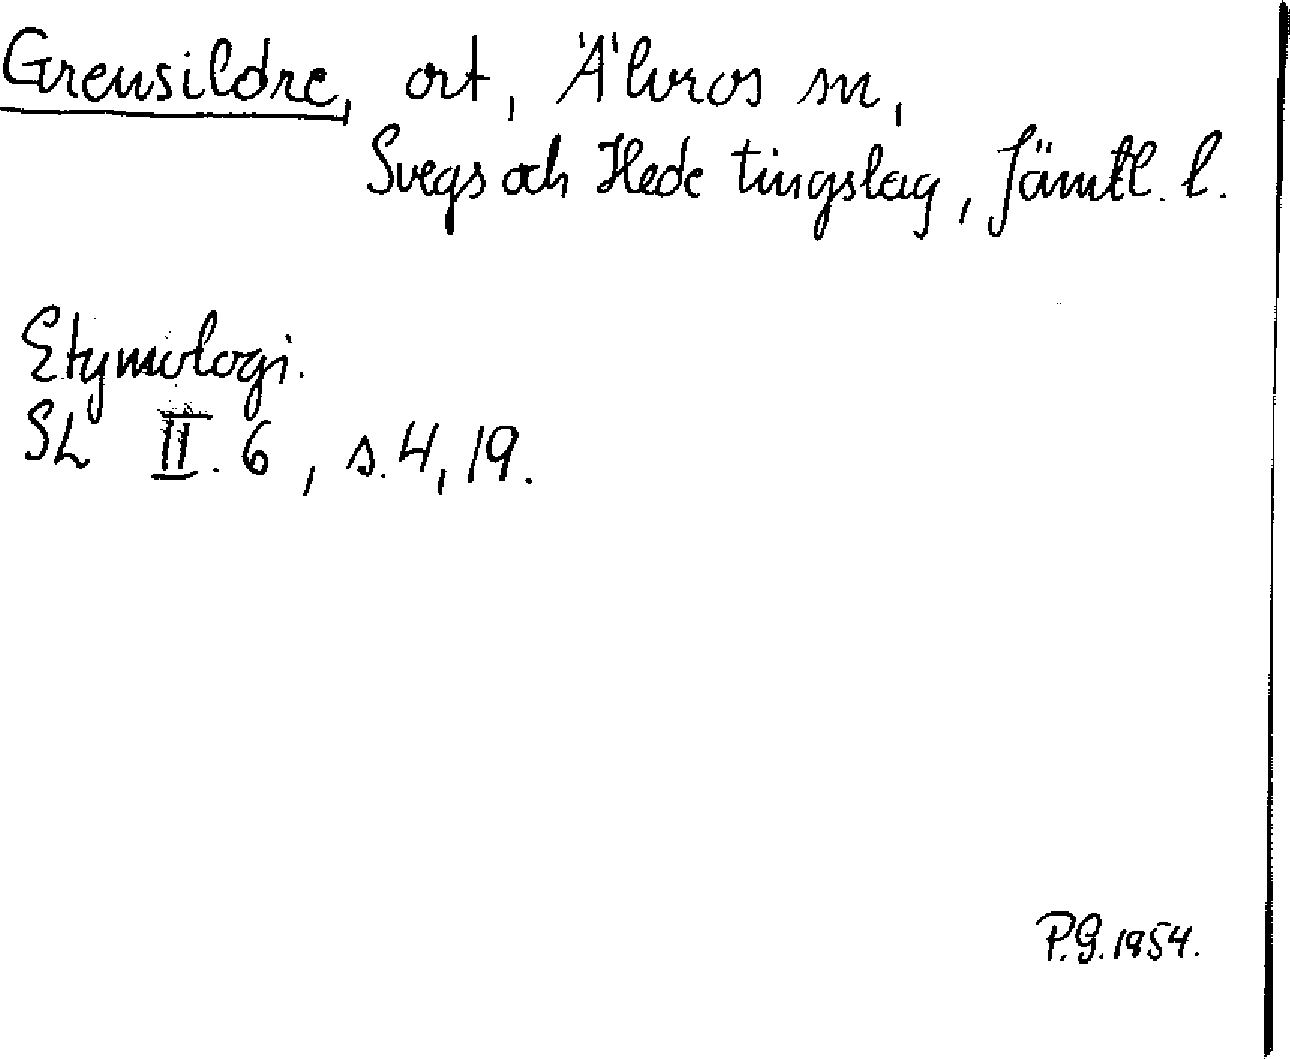 Grensildre, ort, Älvros sn,
Svegs och Hede tingslag, Jämtl. l.
Etymologi.
SL II. 6, s. 4, 19.
P.G. 1954.